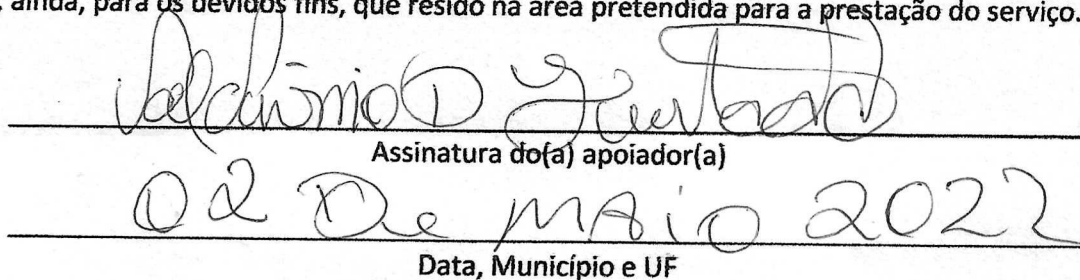 ainda, para os devidos fins, que resido na área pretendida para a prestação do serviço.
Assinatura do(a) apoiador(a)
02 De MAiO 2022
Data, Município e UF